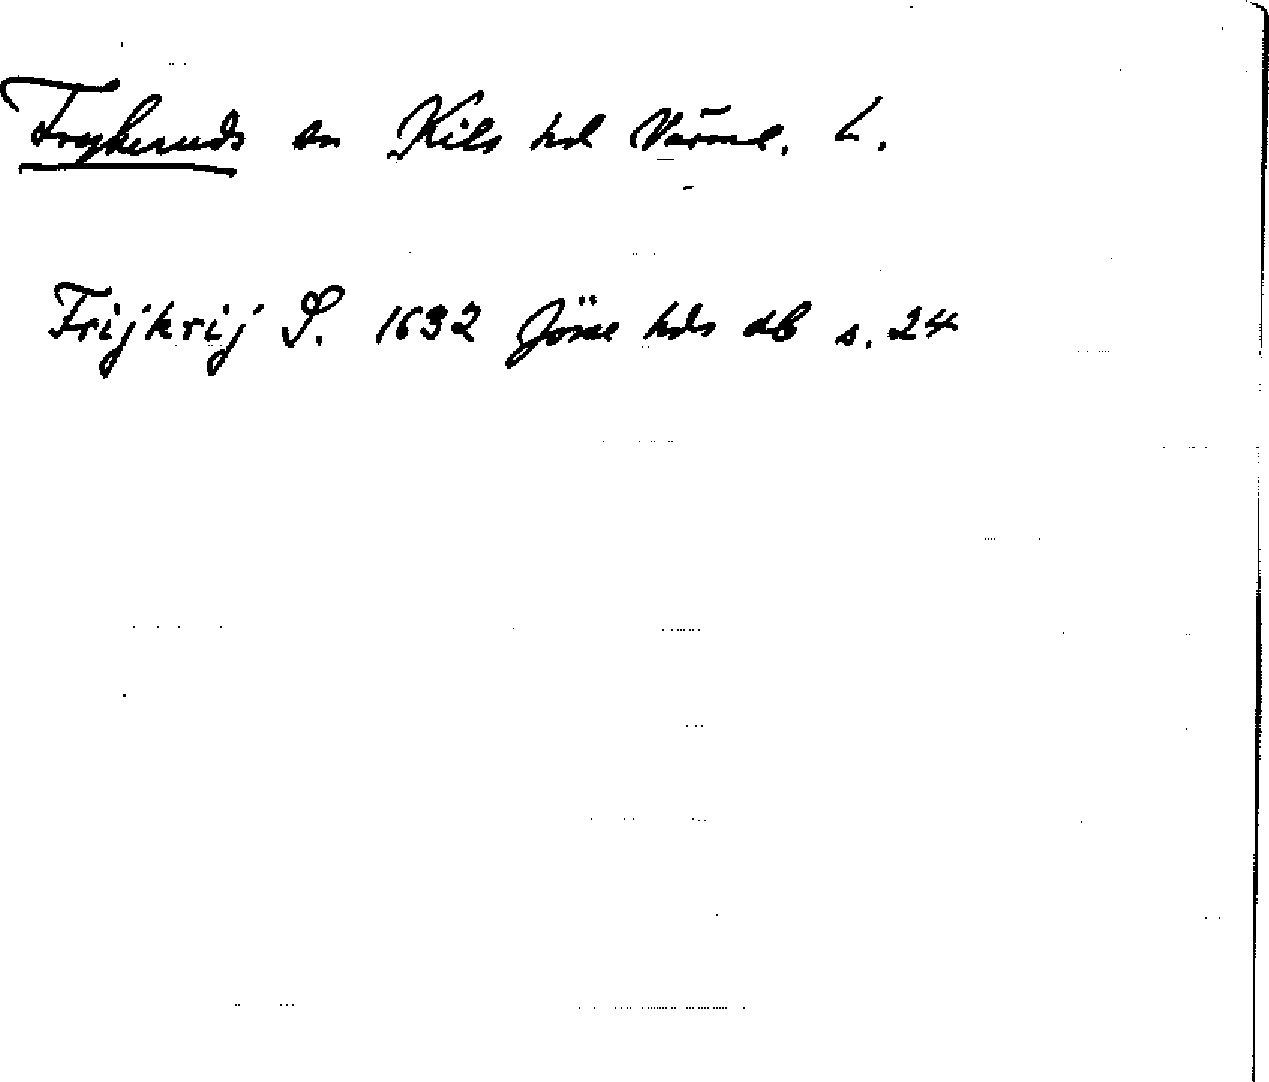 Frykeruds sn Kils hd Värml. L.
Frijkrij S. 1632 Jösse hds db s. 24